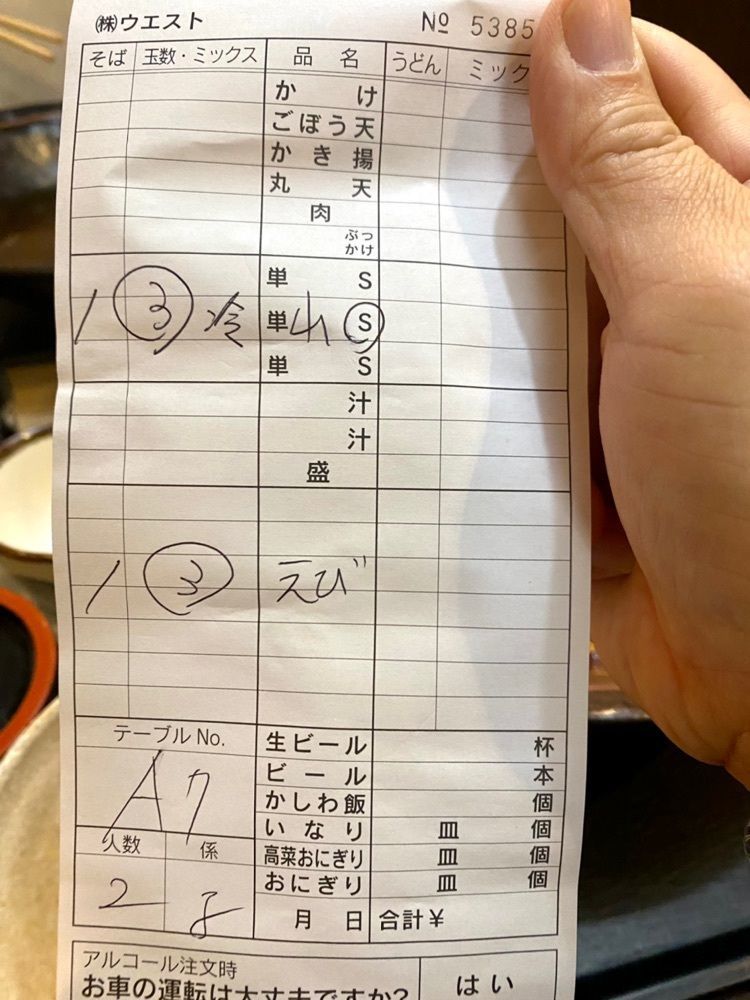 ㈱ウエスト № 5385
そば 玉数・ミックス 品名 うどん ミック
かけ
ごぼう天
かき揚
丸天
肉
ぶっかけ
単 S
1 ③ 冷 単 山 S
単 S
汁
汁
盛
1 ③ えび
テーブルNo. 生ビール 杯
A7 ビール 本
かしわ飯 個
いなり 皿 個
人数 係 高菜おにぎり 皿 個
2 おにぎり 皿 個
月 日 合計¥
アルコール注文時
お車の運転は大丈夫ですか? はい